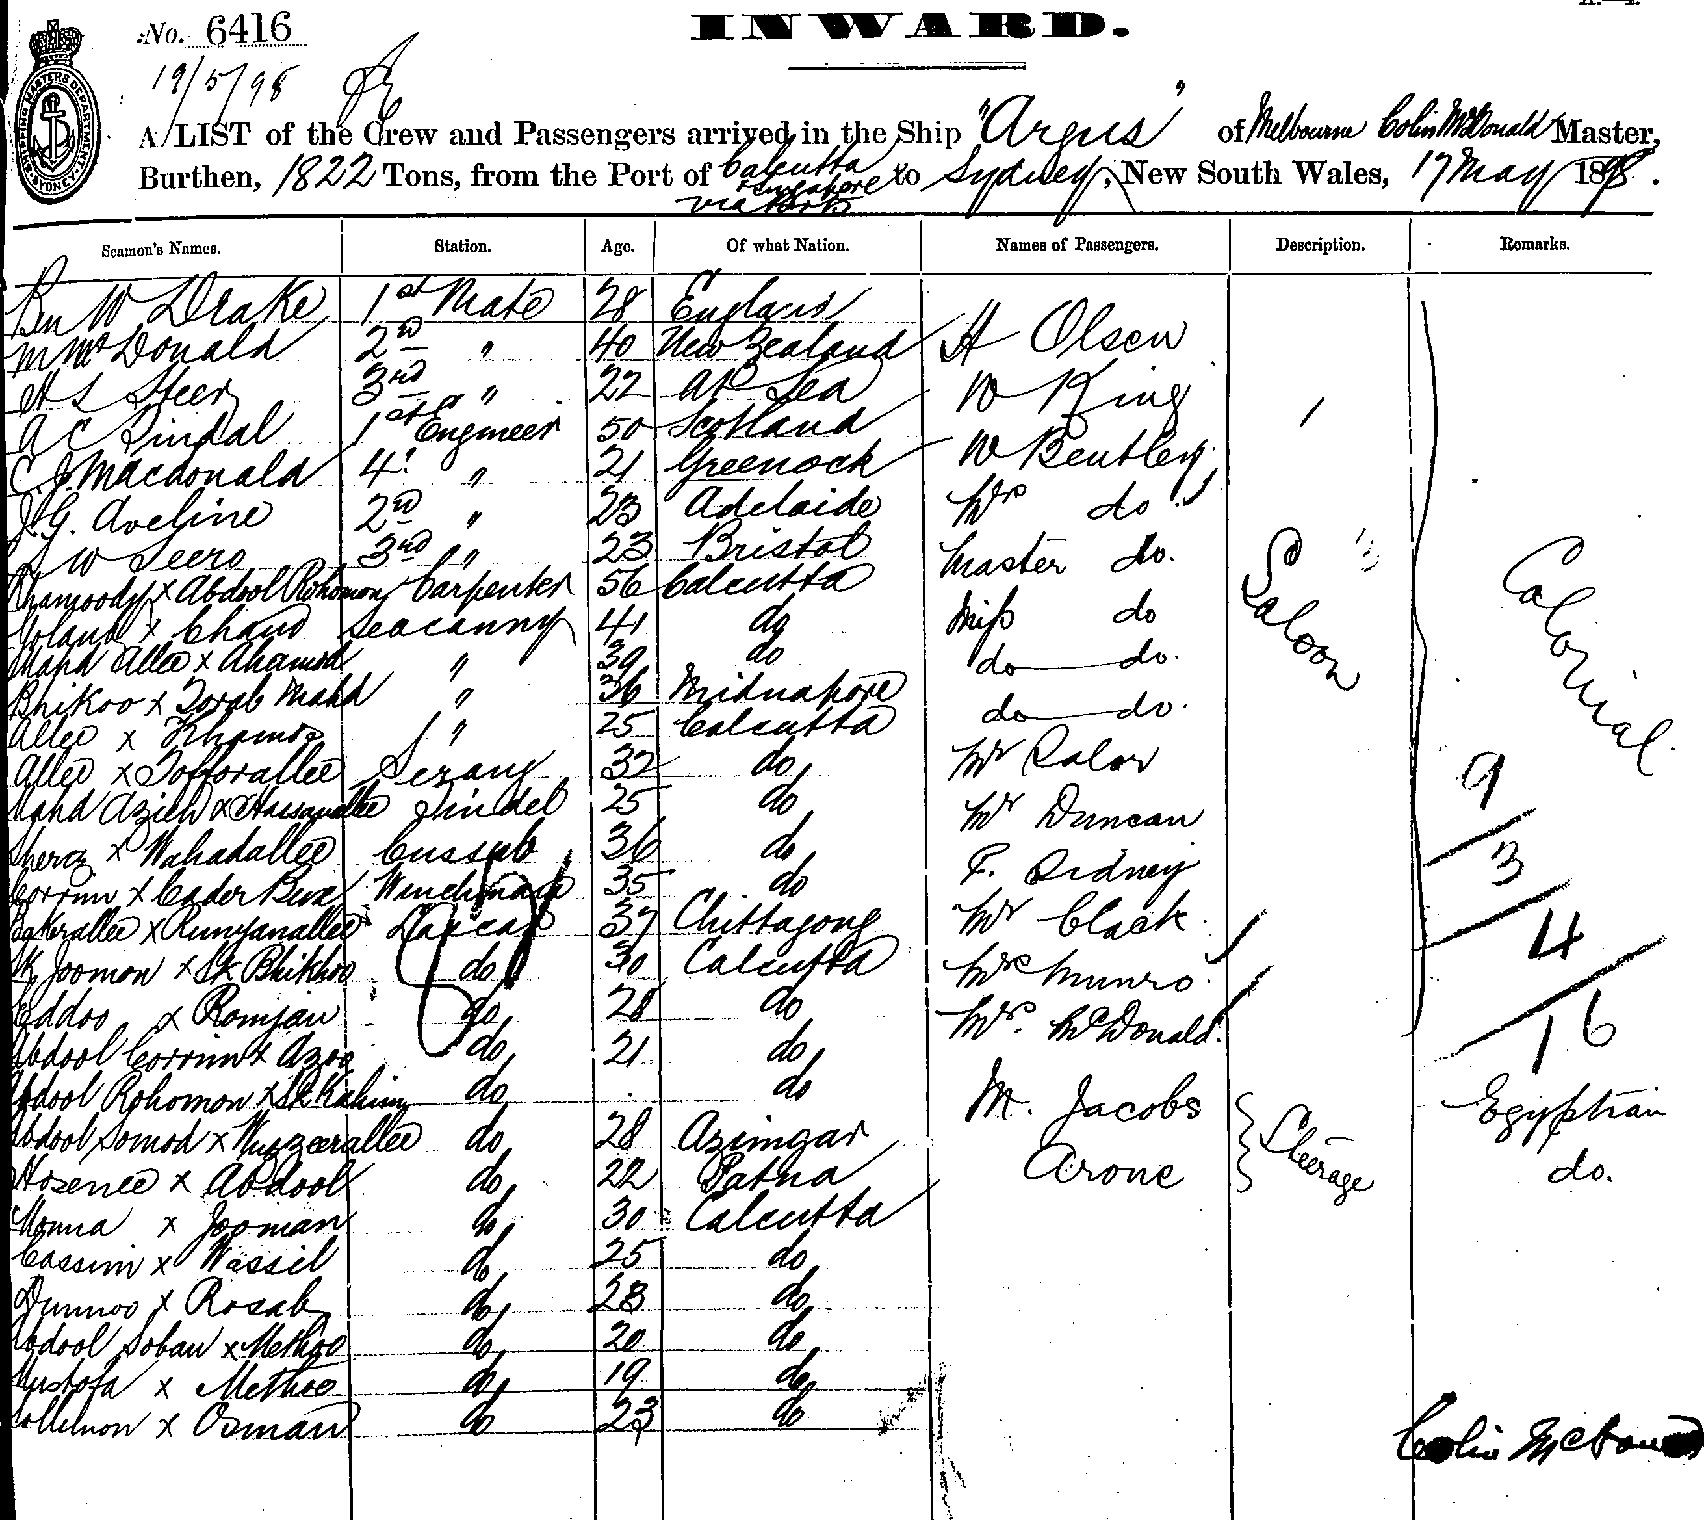 No. 6416
INWARD.
19/5/98
SHIPPING MASTERS DEPARTMENT SYDNEY
A LIST of the Crew and Passengers arrived in the Ship "Argus" of Melbourne Colin McDonald Master,
Burthen, 1822 Tons, from the Port of Calcutta via to Sydney, New South Wales, 17 May 1898.
Seamen's Names. Station. Age. Of what Nation. Names of Passengers. Description. Remarks.
W Drake 1st Mate 28 England
M McDonald 2nd " 40 New Zealand H Olsen
Steer 3rd " 22 At Sea W King
A C 1st Engineer 50 Scotland
C J Macdonald 4 " 21 Greenock W Bentley
J.G. Aveline 2nd " 23 Adelaide Mrs do
W Seers 3rd " 23 Bristol Master do.
x Abdool Rohomon Carpenter 56 Calcutta
x Chand Seacunny 41 do Miss do
Allee x Ahamed " 39 do do do.
Bhikoo x Torab Mahd " 36 Midnapore do do.
Allee x " 25 Calcutta
Allee x Tofforallee Serang 32 do Mr
Tindel 25 do Mr Duncan
x Wahadallee Cussab 36 do F. Sidney
Corrim x Cader Bux Winchman 35 do
x Lascar 37 Chittagong Mr Clack
Sk Joomon x Sk Bhikhoo do 30 Calcutta Mrs Munro
Eddoo x Romjan do 28 do Mrs. McDonald
Saloon
Colonial
9
3
4
16
Abdool Corrim x do 21 do
Abdool Rohomon x Sk do do M. Jacobs Egyptian
Abdool Somod x do 28 Azimgar Steerage
Hosenee x Abdool do 22 Patna Arone do.
Monna x Jooman do 30 Calcutta
Cassim x Wassil do 25 do
x Rosab do 28 do
Abdool Soban x Methoo do 20 do
Mustofa x Methoo do 19 do
x Osman do 23 do
Colin McDonald